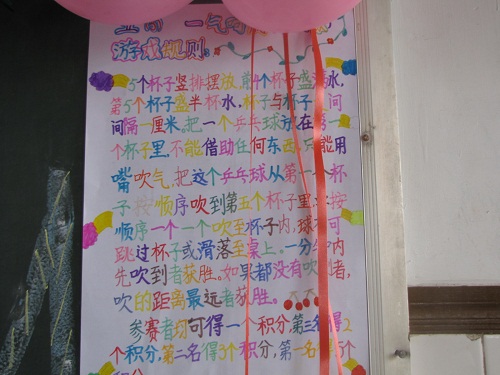 一气
游戏规则:
5个杯子竖排摆放,前4个杯子盛满水,
第5个杯子盛半杯水,杯子与杯子 间
间隔一厘米。把一个乒乓球放在第一
个杯子里,不能借助任何东西,只能用
嘴吹气,把这个乒乓球从第一个杯
子按顺序吹到第五个杯子里 按
顺序一个一个吹至杯子内,球不可
跳过杯子或滑落至桌上。一分钟内
先吹到者获胜。如果都没有吹到者,
吹的距离最远者获胜。
参赛者均可得一个积分,第三名得2
个积分,第二名得3个积分,第一名 5个
积分